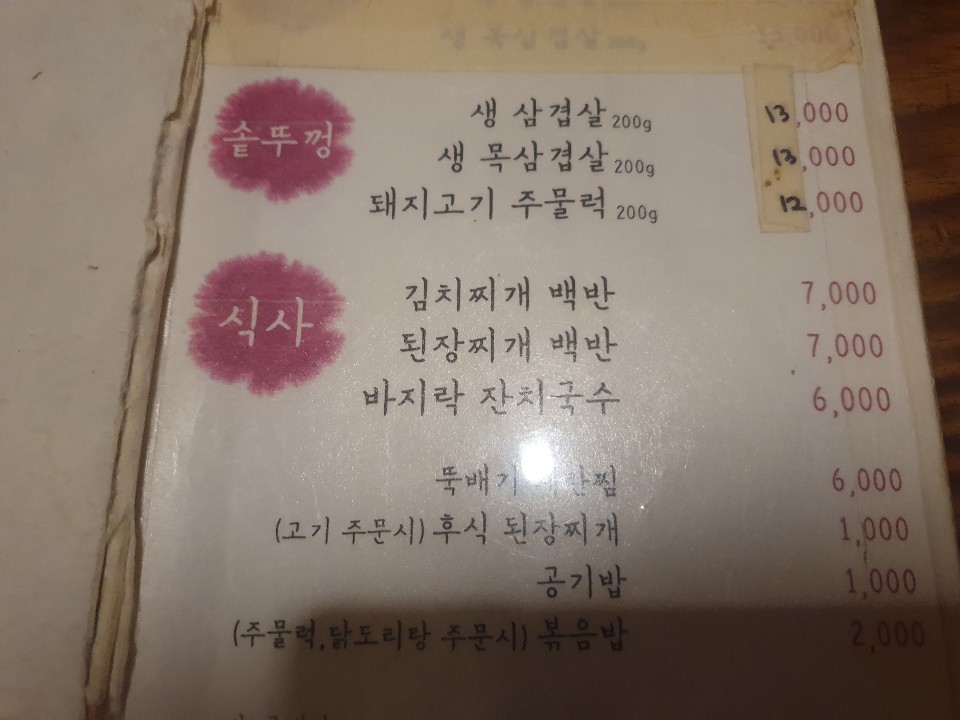 솥뚜껑
생 삼겹살 200g 13,000
생 목삼겹살 200g 13,000
돼지고기 주물럭 200g 12,000
식사
김치찌개 백반 7,000
된장찌개 백반 7,000
바지락 잔치국수 6,000
뚝배기 계란찜 6,000
(고기 주문시) 후식 된장찌개 1,000
공기밥 1,000
(주물럭,닭도리탕 주문시) 볶음밥 2,000